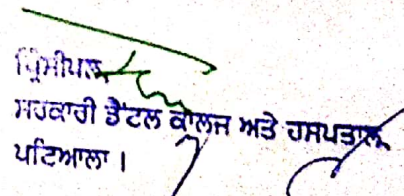 ਪ੍ਰਿੰਸੀਪਲ
ਸਰਕਾਰੀ ਡੈਂਟਲ ਕਾਲਜ ਅਤੇ ਹਸਪਤਾਲ
ਪਟਿਆਲਾ ।